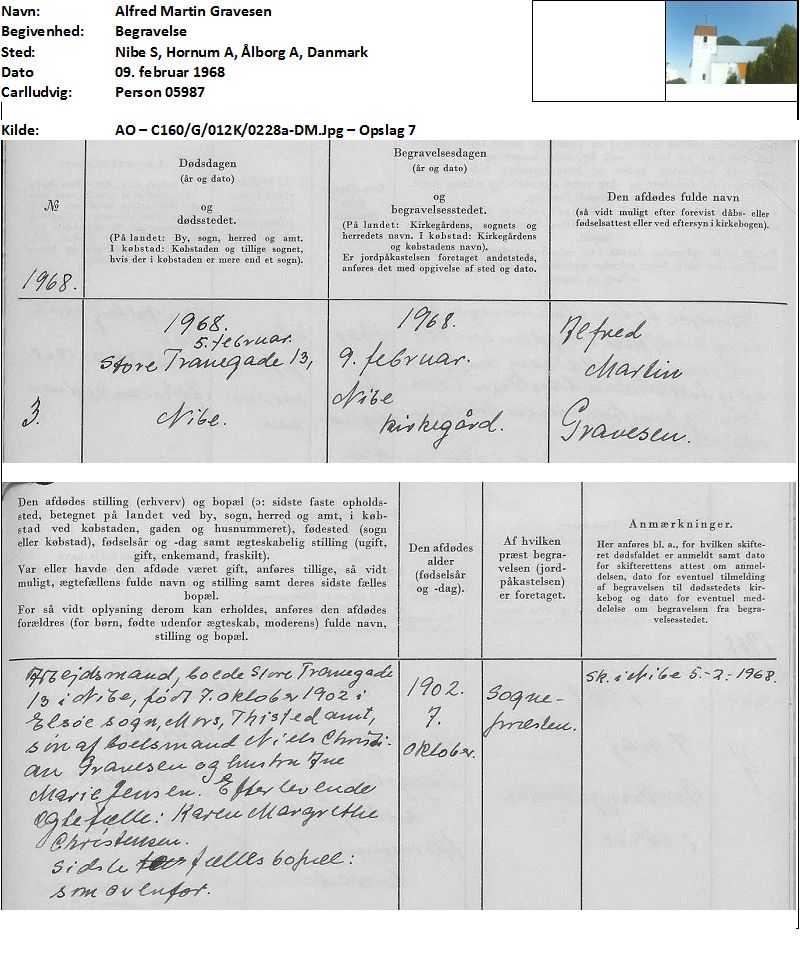 Navn: Alfred Martin Gravesen
Begivenhed: Begravelse
Sted: Nibe S, Hornum A, Ålborg A, Danmark
Dato 09. februar 1968
Carlludvig: Person 05987
Kilde: AO – C160/G/012K/0228a-DM.Jpg – Opslag 7
№
1968.
Dødsdagen
(år og dato)
og
dødsstedet.
(På landet: By, sogn, herred og amt.
I købstad: Købstaden og tillige sognet,
hvis der i købstaden er mere end et sogn).
Begravelsesdagen
(år og dato)
og
begravelsesstedet.
(På landet: Kirkegårdens, sognets og
herredets navn. I købstad: Kirkegårdens
og købstadens navn).
Er jordpåkastelsen foretaget andetsteds,
anføres det med opgivelse af sted og dato.
Den afdødes fulde navn
(så vidt muligt efter forevist dåbs- eller
fødselsattest eller ved eftersyn i kirkebogen).
3.
1968.
5. februar.
Store Tranegade 13,
Nibe.
1968.
9. februar.
Nibe
kirkegård.
Alfred
Martin
Gravesen.
Den afdødes stilling (erhverv) og bopæl (ɔ: sidste faste opholds-
sted, betegnet på landet ved by, sogn, herred og amt, i køb-
stad ved købstaden, gaden og husnummeret), fødested (sogn
eller købstad), fødselsår og -dag samt ægteskabelig stilling (ugift,
gift, enkemand, fraskilt).
Var eller havde den afdøde været gift, anføres tillige, så vidt
muligt, ægtefællens fulde navn og stilling samt deres sidste fælles
bopæl.
For så vidt oplysning derom kan erholdes, anføres den afdødes
forældres (for børn, fødte udenfor ægteskab, moderens) fulde navn,
stilling og bopæl.
Den afdødes
alder
(fødselsår
og -dag).
Af hvilken
præst begra-
velsen (jord-
påkastelsen)
er foretaget.
Anmærkninger.
Her anføres bl. a., for hvilken skifte-
ret dødsfaldet er anmeldt samt dato
for skifterettens attest om anmel-
delsen, dato for eventuel tilmelding
af begravelsen til dødsstedets kir-
kebog og dato for eventuel med-
delelse om begravelsen fra begra-
velsesstedet.
Arbejdsmand, boede Store Tranegade
13 i Nibe, født 7. oktober 1902 i
Elsøe sogn, Mors, Thisted amt,
søn af boelsmand Niels Christi-
an Gravesen og hustru Ane
Marie Jensen. Efterlevende
ægtefælle: Karen Margrethe
Christensen.
Sidste fælles bopæl:
som ovenfor.
1902.
7.
oktober.
Sogne-
præsten.
Sk. i Nibe 5-2-1968.